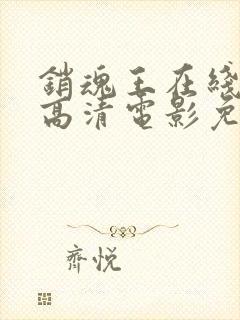 銷魂玉在綫
高清電影免
齊悅